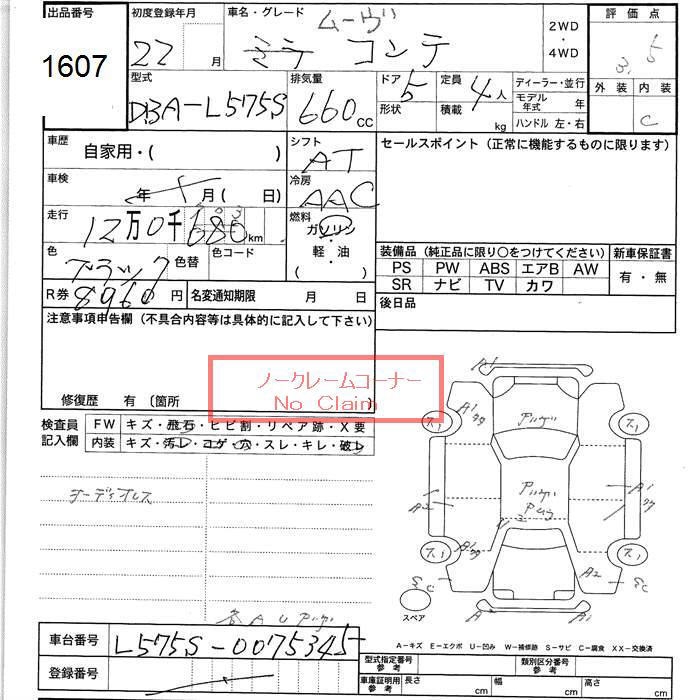 出品番号
1607
初度登録年月
22 月
車名・グレード
ムーヴ
コンテ
2WD
・
4WD
評価点
3. 5
外装 内装
C
型式
DBA-L575S
排気量
660 CC
ドア
5
形状
定員
4人
積載
kg
ディーラー・並行
モデル年式 年
ハンドル 左・右
車歴
自家用・( )
シフト
AT
セールスポイント(正常に機能するものに限ります)
車検
年 月( 日)
冷房
AAC
走行
12万0千680km
燃料
ガソリン
・
軽・油
( )
色
ブラック
色替
色コード
装備品(純正品に限り○をつけてください)
新車保証書
PS PW ABS エアB AW
有・無
SR ナビ TV カワ
R券
8960円
名変通知期限 月 日
後日品
注意事項申告欄(不具合内容等は具体的に記入して下さい)
ノークレームコーナー
No Claim
修復歴 有(箇所
検査員記入欄
FW キズ・飛石・ヒビ割・リペア跡・X要
内装 キズ・汚レ・コゲ・穴・スレ・キレ・破レ
オーディオレス
A1
A1
ス1
ス1
A2
A1
ス1
ス1
A2
スペア
A2
A1
A-キズ E-エクボ U-凹み W-補修跡 S-サビ C-腐食 XX-交換済
車台番号
L575S-0075345
登録番号
型式指定番号 参考
類別区分番号 参考
車庫証明用 参考
長さ cm
幅 cm
高さ cm